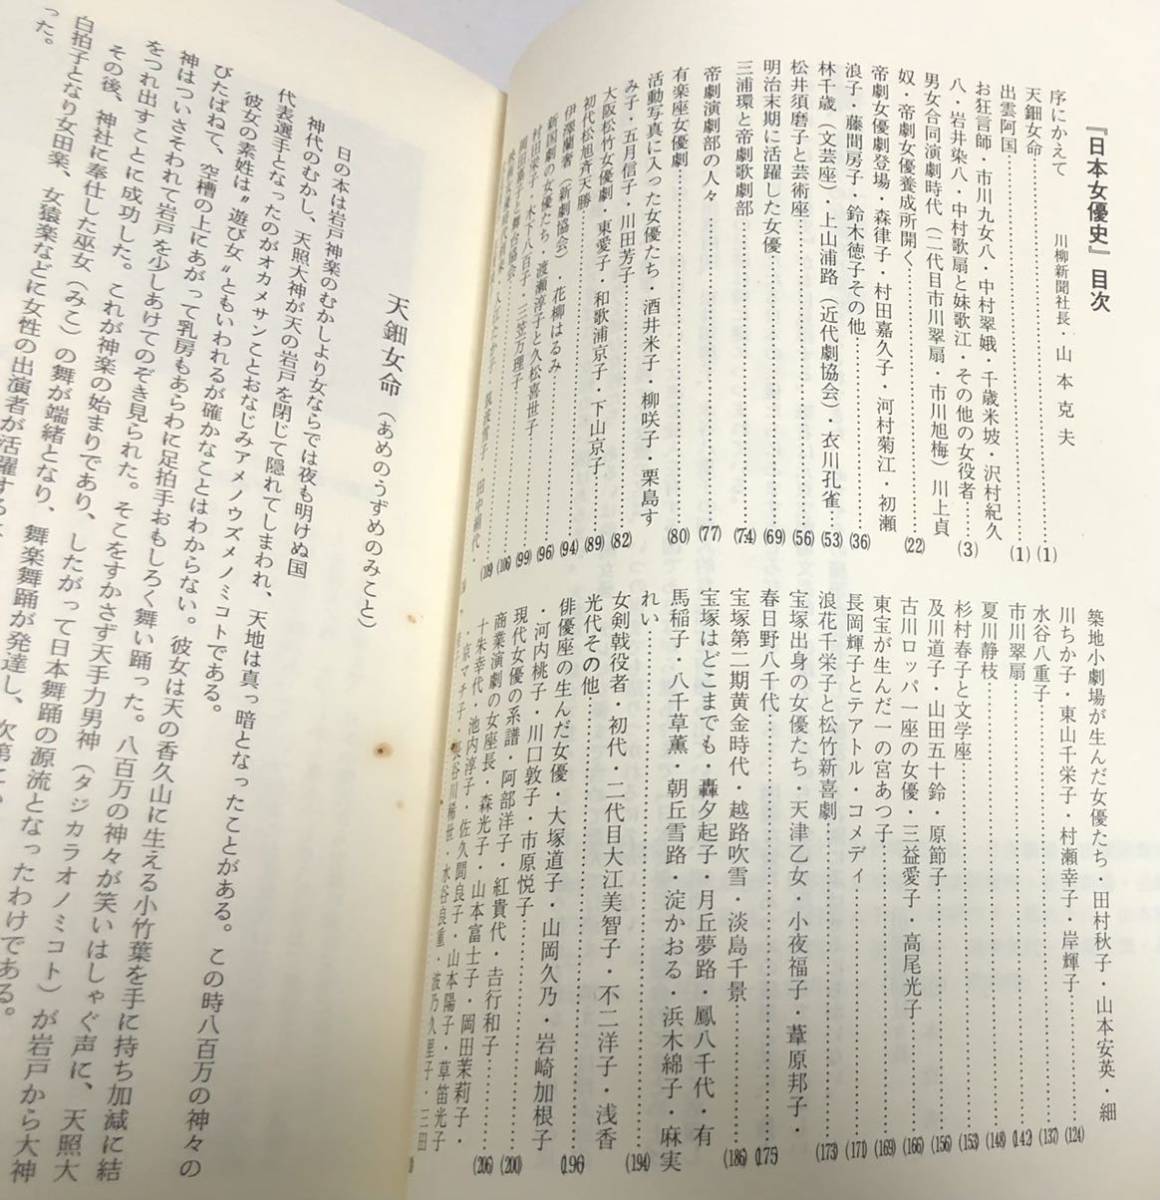 『日本女優史』目次
序にかえて　川柳新聞社長・山本克夫
天鈿女命……(1)
出雲阿国……(1)
お狂言師・市川九女八・中村翠娥・千歳米坡・沢村紀久
八・岩井染八・中村歌扇と妹歌江・その他の女役者……(3)
男女合同演劇時代（二代目市川翠扇・市川旭梅）川上貞
奴・帝劇女優養成所開く……(22)
帝劇女優劇登場・森律子・村田嘉久子・河村菊江・初瀬
浪子・藤間房子・鈴木徳子その他……(36)
林千歳（文芸座）・上山浦路（近代劇協会）・衣川孔雀……(53)
松井須磨子と芸術座……(56)
明治末期に活躍した女優……(69)
三浦環と帝劇歌劇部……(74)
帝劇演劇部の人々……(77)
有楽座女優劇……(80)
活動写真に入った女優たち・酒井米子・柳咲子・栗島す
み子・五月信子・川田芳子……(82)
大阪松竹女優劇・東愛子・和歌浦京子・下山京子……(89)
初代松旭斉天勝……(94)
伊澤蘭奢（新劇協会）・花柳はるみ……(96)
新国劇の女優たち・渡瀬淳子と久松喜世子……(99)
村田栄子・木下八百子・三笠万理子……(106)
築地小劇場が生んだ女優たち・田村秋子・山本安英・細
川ちか子・東山千栄子・村瀬幸子・岸輝子……(124)
水谷八重子……(137)
市川翠扇……(142)
夏川静枝……(148)
杉村春子と文学座……(153)
及川道子・山田五十鈴・原節子……(156)
古川ロッパ一座の女優・三益愛子・高尾光子……(166)
東宝が生んだ一の宮あつ子……(169)
長岡輝子とテアトル・コメディ……(171)
浪花千栄子と松竹新喜劇……(173)
宝塚出身の女優たち・天津乙女・小夜福子・葦原邦子・
春日野八千代……(175)
宝塚第二期黄金時代・越路吹雪・淡島千景……(186)
宝塚はどこまでも・轟夕起子・月丘夢路・鳳八千代・有
馬稲子・八千草薫・朝丘雪路・淀かおる・浜木綿子・麻実
れい……(194)
女剣戟役者・初代・二代目大江美智子・不二洋子・浅香
光代その他……(196)
俳優座の生んだ女優・大塚道子・山岡久乃・岩崎加根子
・河内桃子・川口敦子・市原悦子……(200)
現代女優の系譜・阿部洋子・紅貴代・吉行和子……(206)
商業演劇の女座長・森光子・山本富士子・岡田茉莉子・
十朱幸代・池内淳子・佐久間良子・山本陽子・草笛光子
・京マチ子・長谷川稀世・水谷良重・波乃久里子・三田
天鈿女命（あめのうずめのみこと）
日の本は岩戸神楽のむかしより女ならでは夜も明けぬ国
神代のむかし、天照大神が天の岩戸を閉じて隠れてしまわれ、天地は真っ暗となったことがある。この時八百万の神々の
代表選手となったのがオカメサンことおなじみアメノウズメノミコトである。
彼女の素姓は〝遊び女〟ともいわれるが確かなことはわからない。彼女は天の香久山に生える小竹葉を手に持ち加減に結
びたばねて、空槽の上にあがって乳房もあらわに足拍手おもしろく舞い踊った。八百万の神々が笑いはしゃぐ声に、天照大
神はついさそわれて岩戸を少しあけてのぞき見られた。そこをすかさず天手力男神（タジカラオノミコト）が岩戸から大神
をつれ出すことに成功した。これが神楽の始まりであり、したがって日本舞踊の源流となったわけである。
その後、神社に奉仕した巫女（みこ）の舞が端緒となり、舞楽舞踊が発達し、次第に
白拍子となり女田楽、女猿楽などに女性の出演者が活躍する
った。